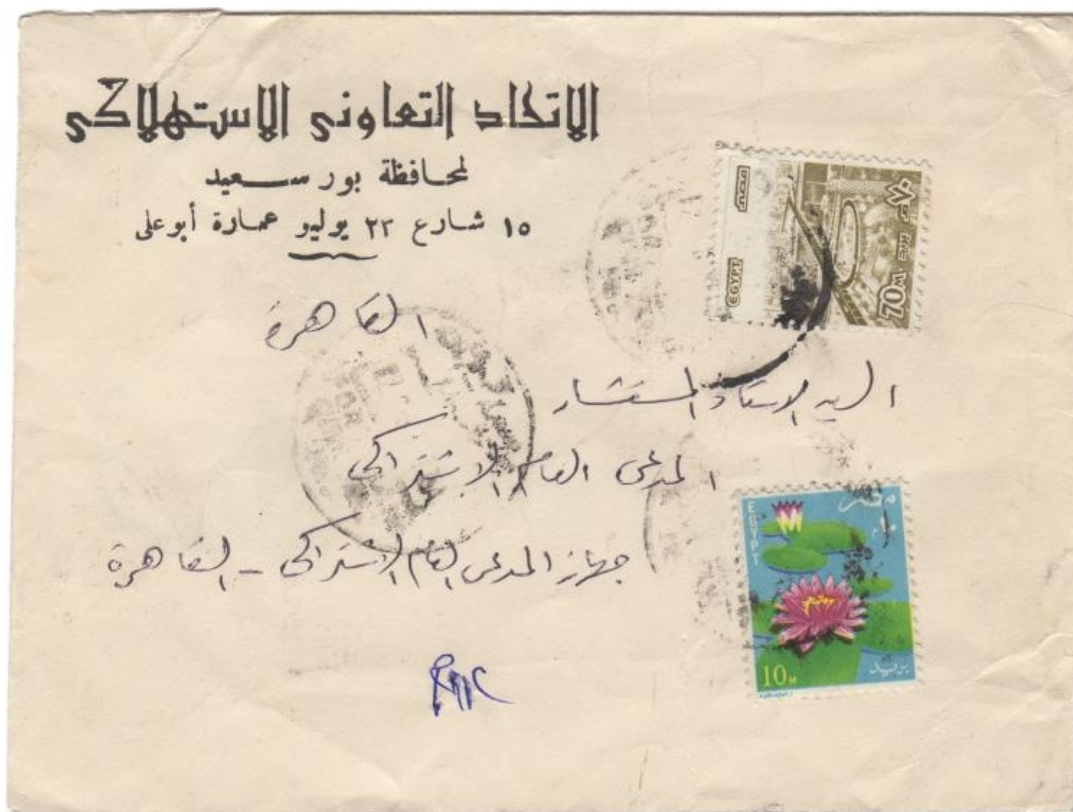 الاتحاد التعاونى الاستهلاكى
لمحافظة بور سعيد
١٥ شارع ٢٣ يوليو عمارة أبوعلى
مصر
EGYPT
٧٠
70M
بريد
القاهرة
السيد الاستاذ المستشار
المدعى العام الاشتراكى
جهاز المدعى العام الاشتراكى - القاهرة
مصر
١٠ م
EGYPT
10 M
بريد